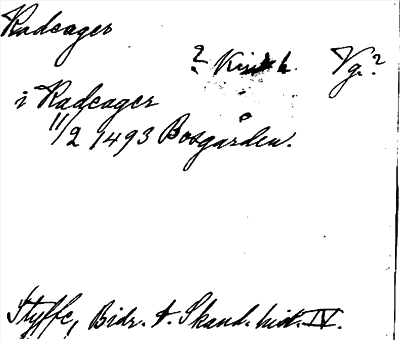 Radeager
? h. Vg.?
i Radeager
11/2 1493 Bosgården.
Styffe, Bidr. t. Skand. hist. IV.